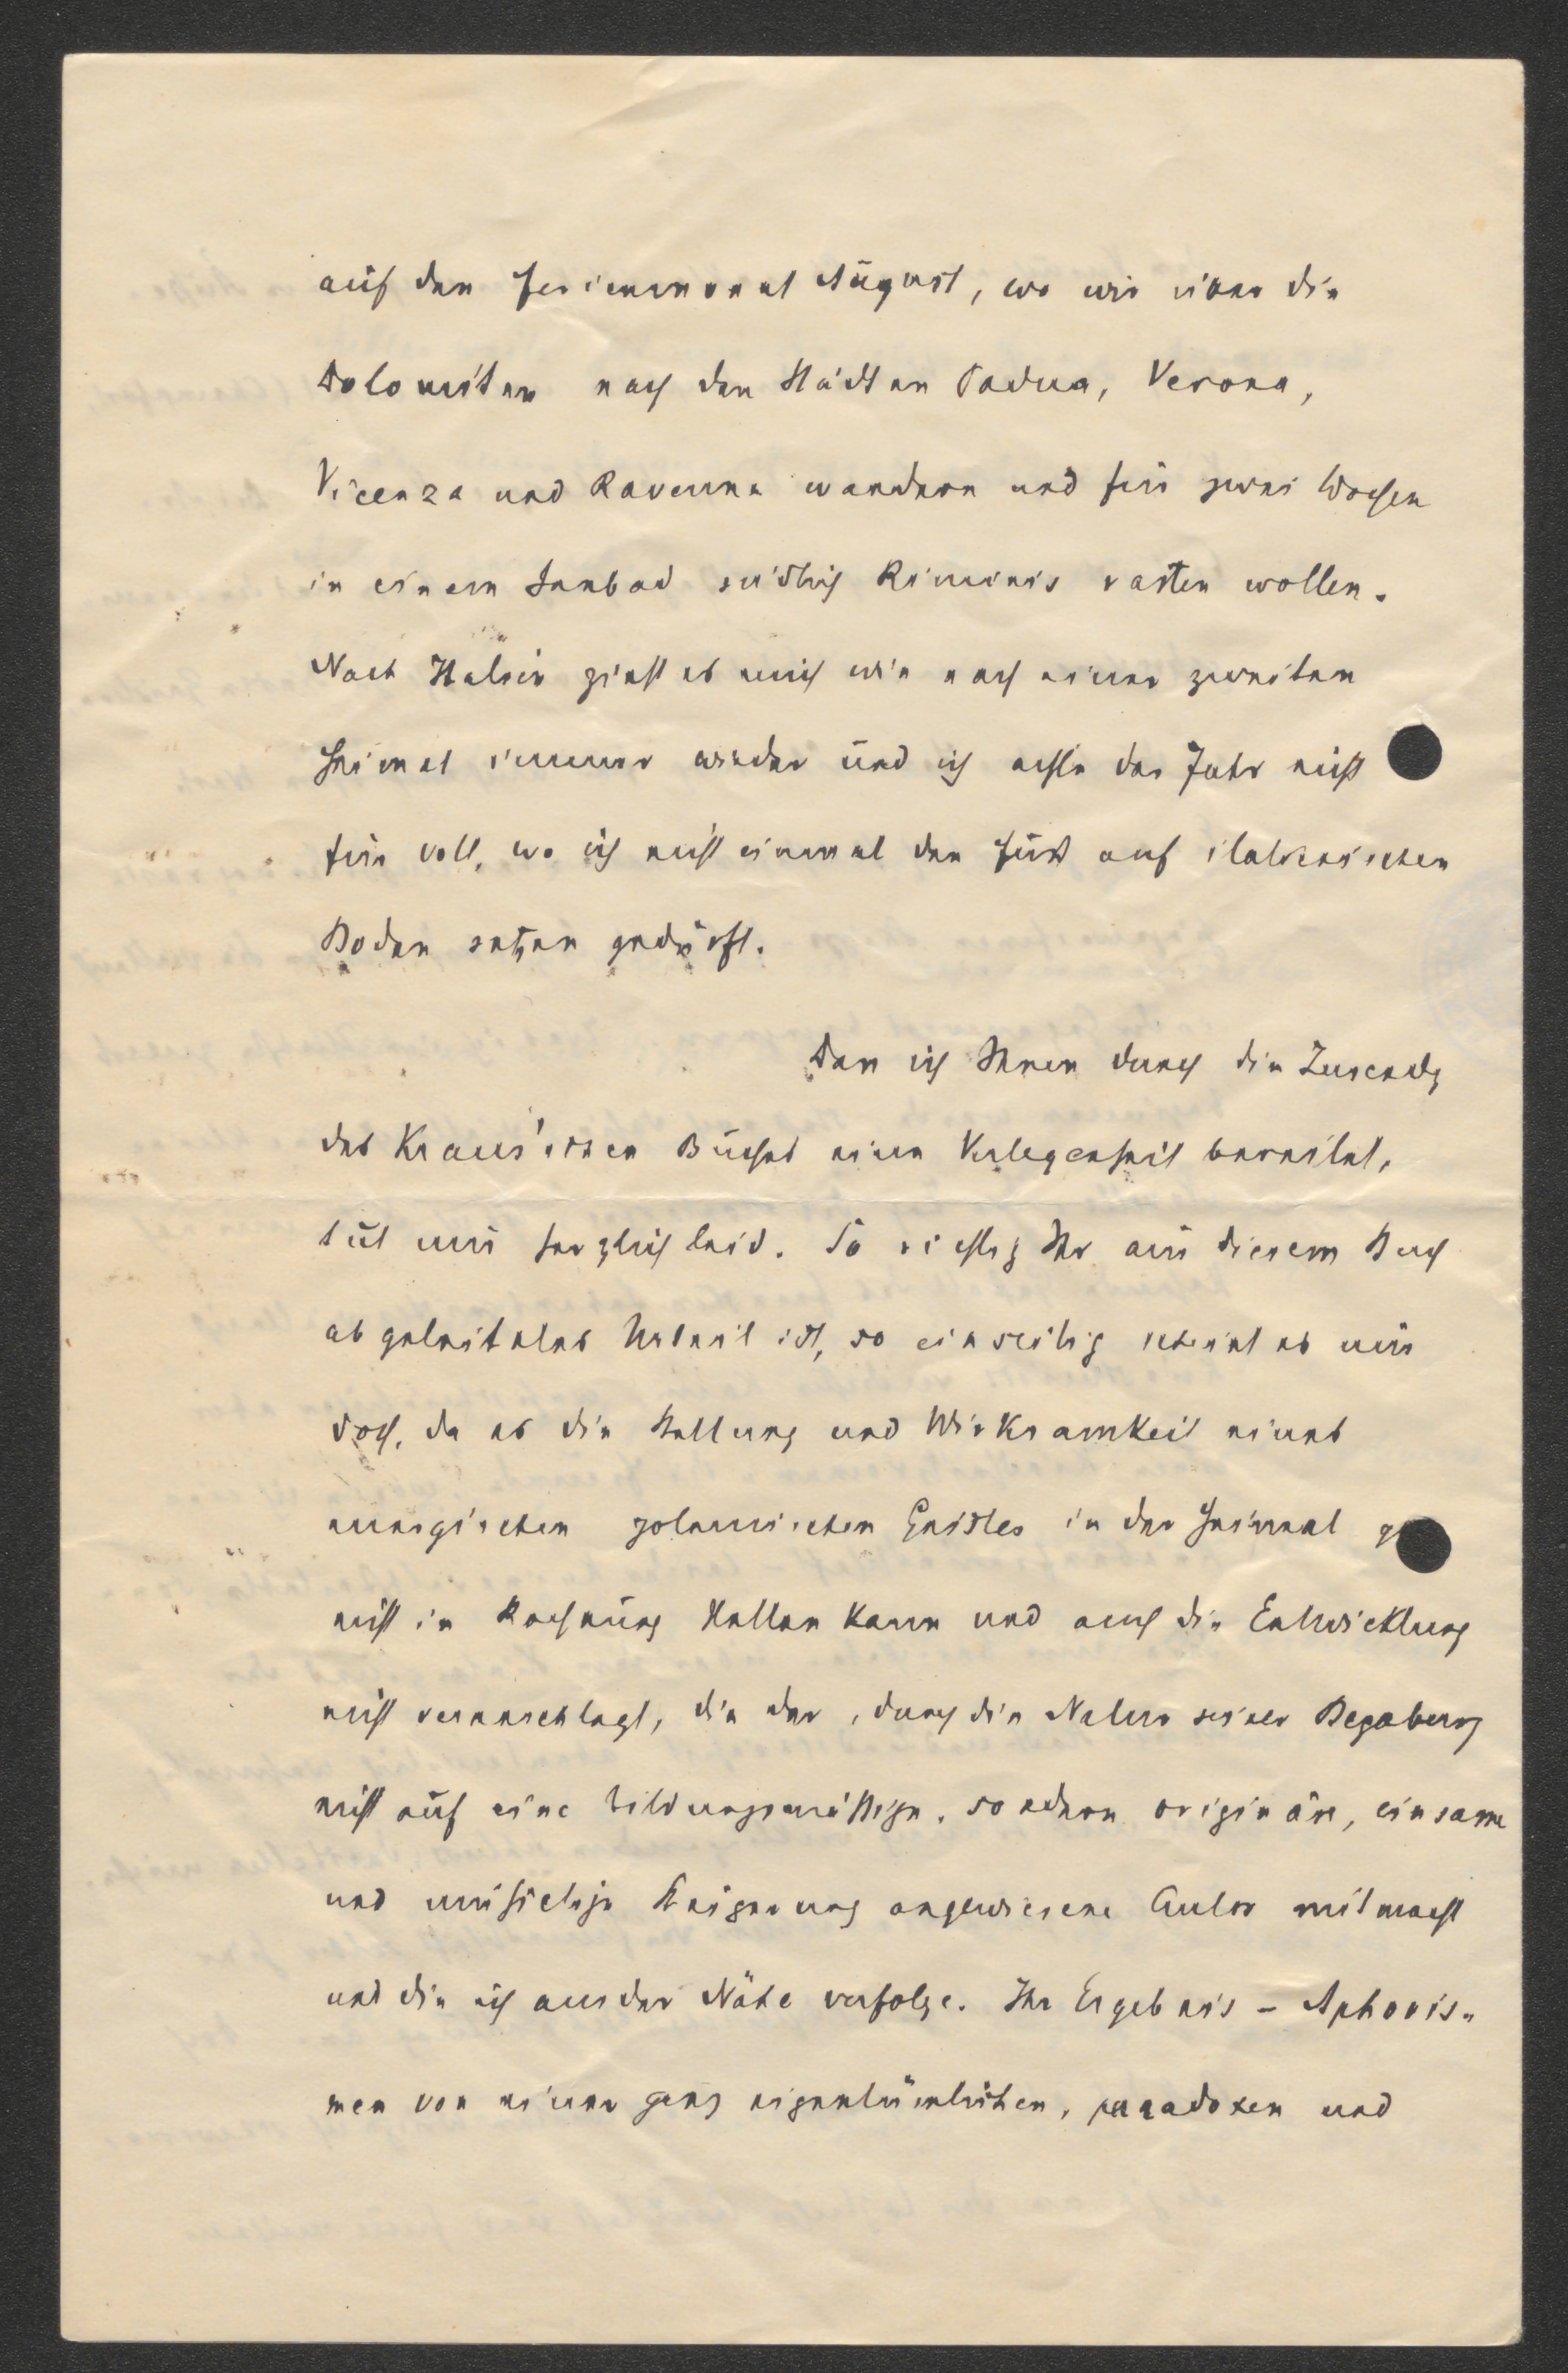 auf den Ferienmonat August, wo wir über die
Dolomiten nach den Städten Padua, Verona,
Vicenza und Ravenna wandern und für zwei Wochen
in einem Seebad südlich Riminis rasten wollen.
Nach Italien zieht es mich wie nach einer zweiten
Heimat immer wieder und ich achte das Jahr nicht
für voll, wo ich nicht einmal den Fuß auf italienischen
Boden setzen gedurft.
Den ich Ihnen durch die Zusendg
des Kraus'schen Buches eine Verlegenheit bereitet,
tut mir herzlich leid. So richtig Ihr aus diesem Buch
abgeleitetes Urteil ist, so einseitig scheint es mir
doch, da es die Stellung und Wirksamkeit eines
energischen polemischen Geistes in der Heimat
nicht in Rechnung stellen kann und auch die Entwicklung
nicht veranschlagt, die der, durch die Natur seiner Begabung
nicht auf eine bildungsmäßige, sondern originäre, einsame
und mühselige Steigerung angewiesene Autor mitmacht
und die ich aus der Nähe verfolge. Ihr Ergebnis – Aphoris-
men von einer ganz eigentümlichen, paradoxen und